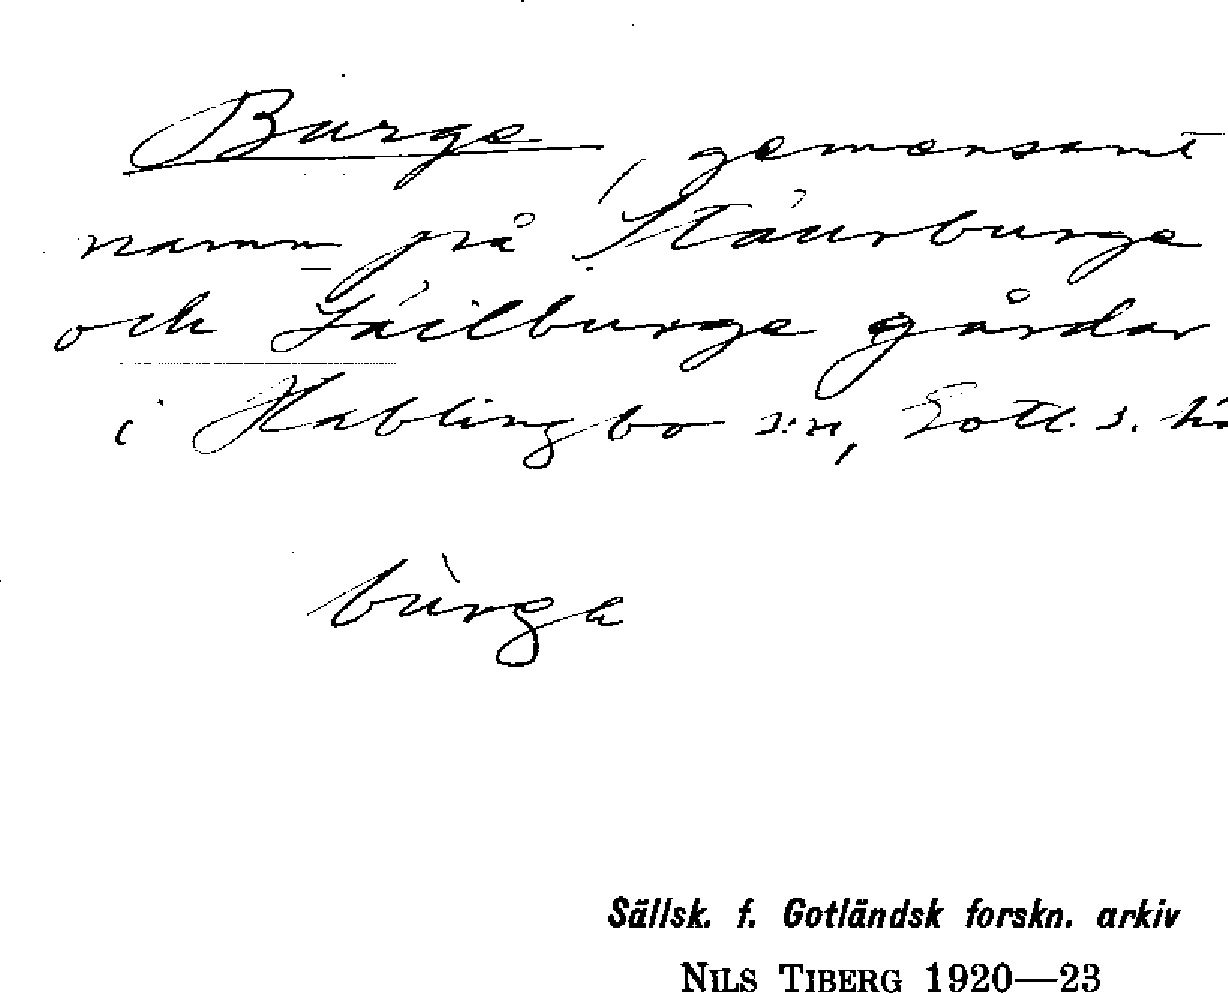 Burge, gemensamt
namn på Stáurburge
och Láilburge gårdar
i Hablingbo s:n, Gotl. s. hä
bùrge
Sällsk. f. Gotländsk forskn. arkiv
NILS TIBERG 1920—23